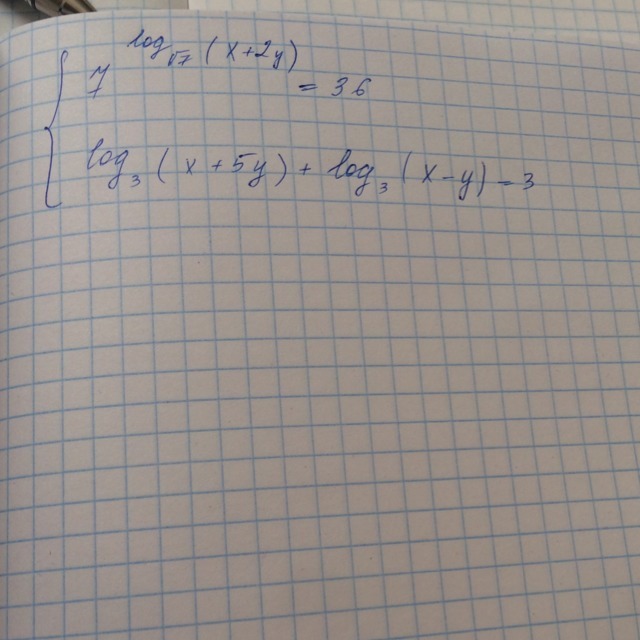 7^{log_{√7}(x+2y)} = 36
log₃(x+5y) + log₃(x-y) = 3